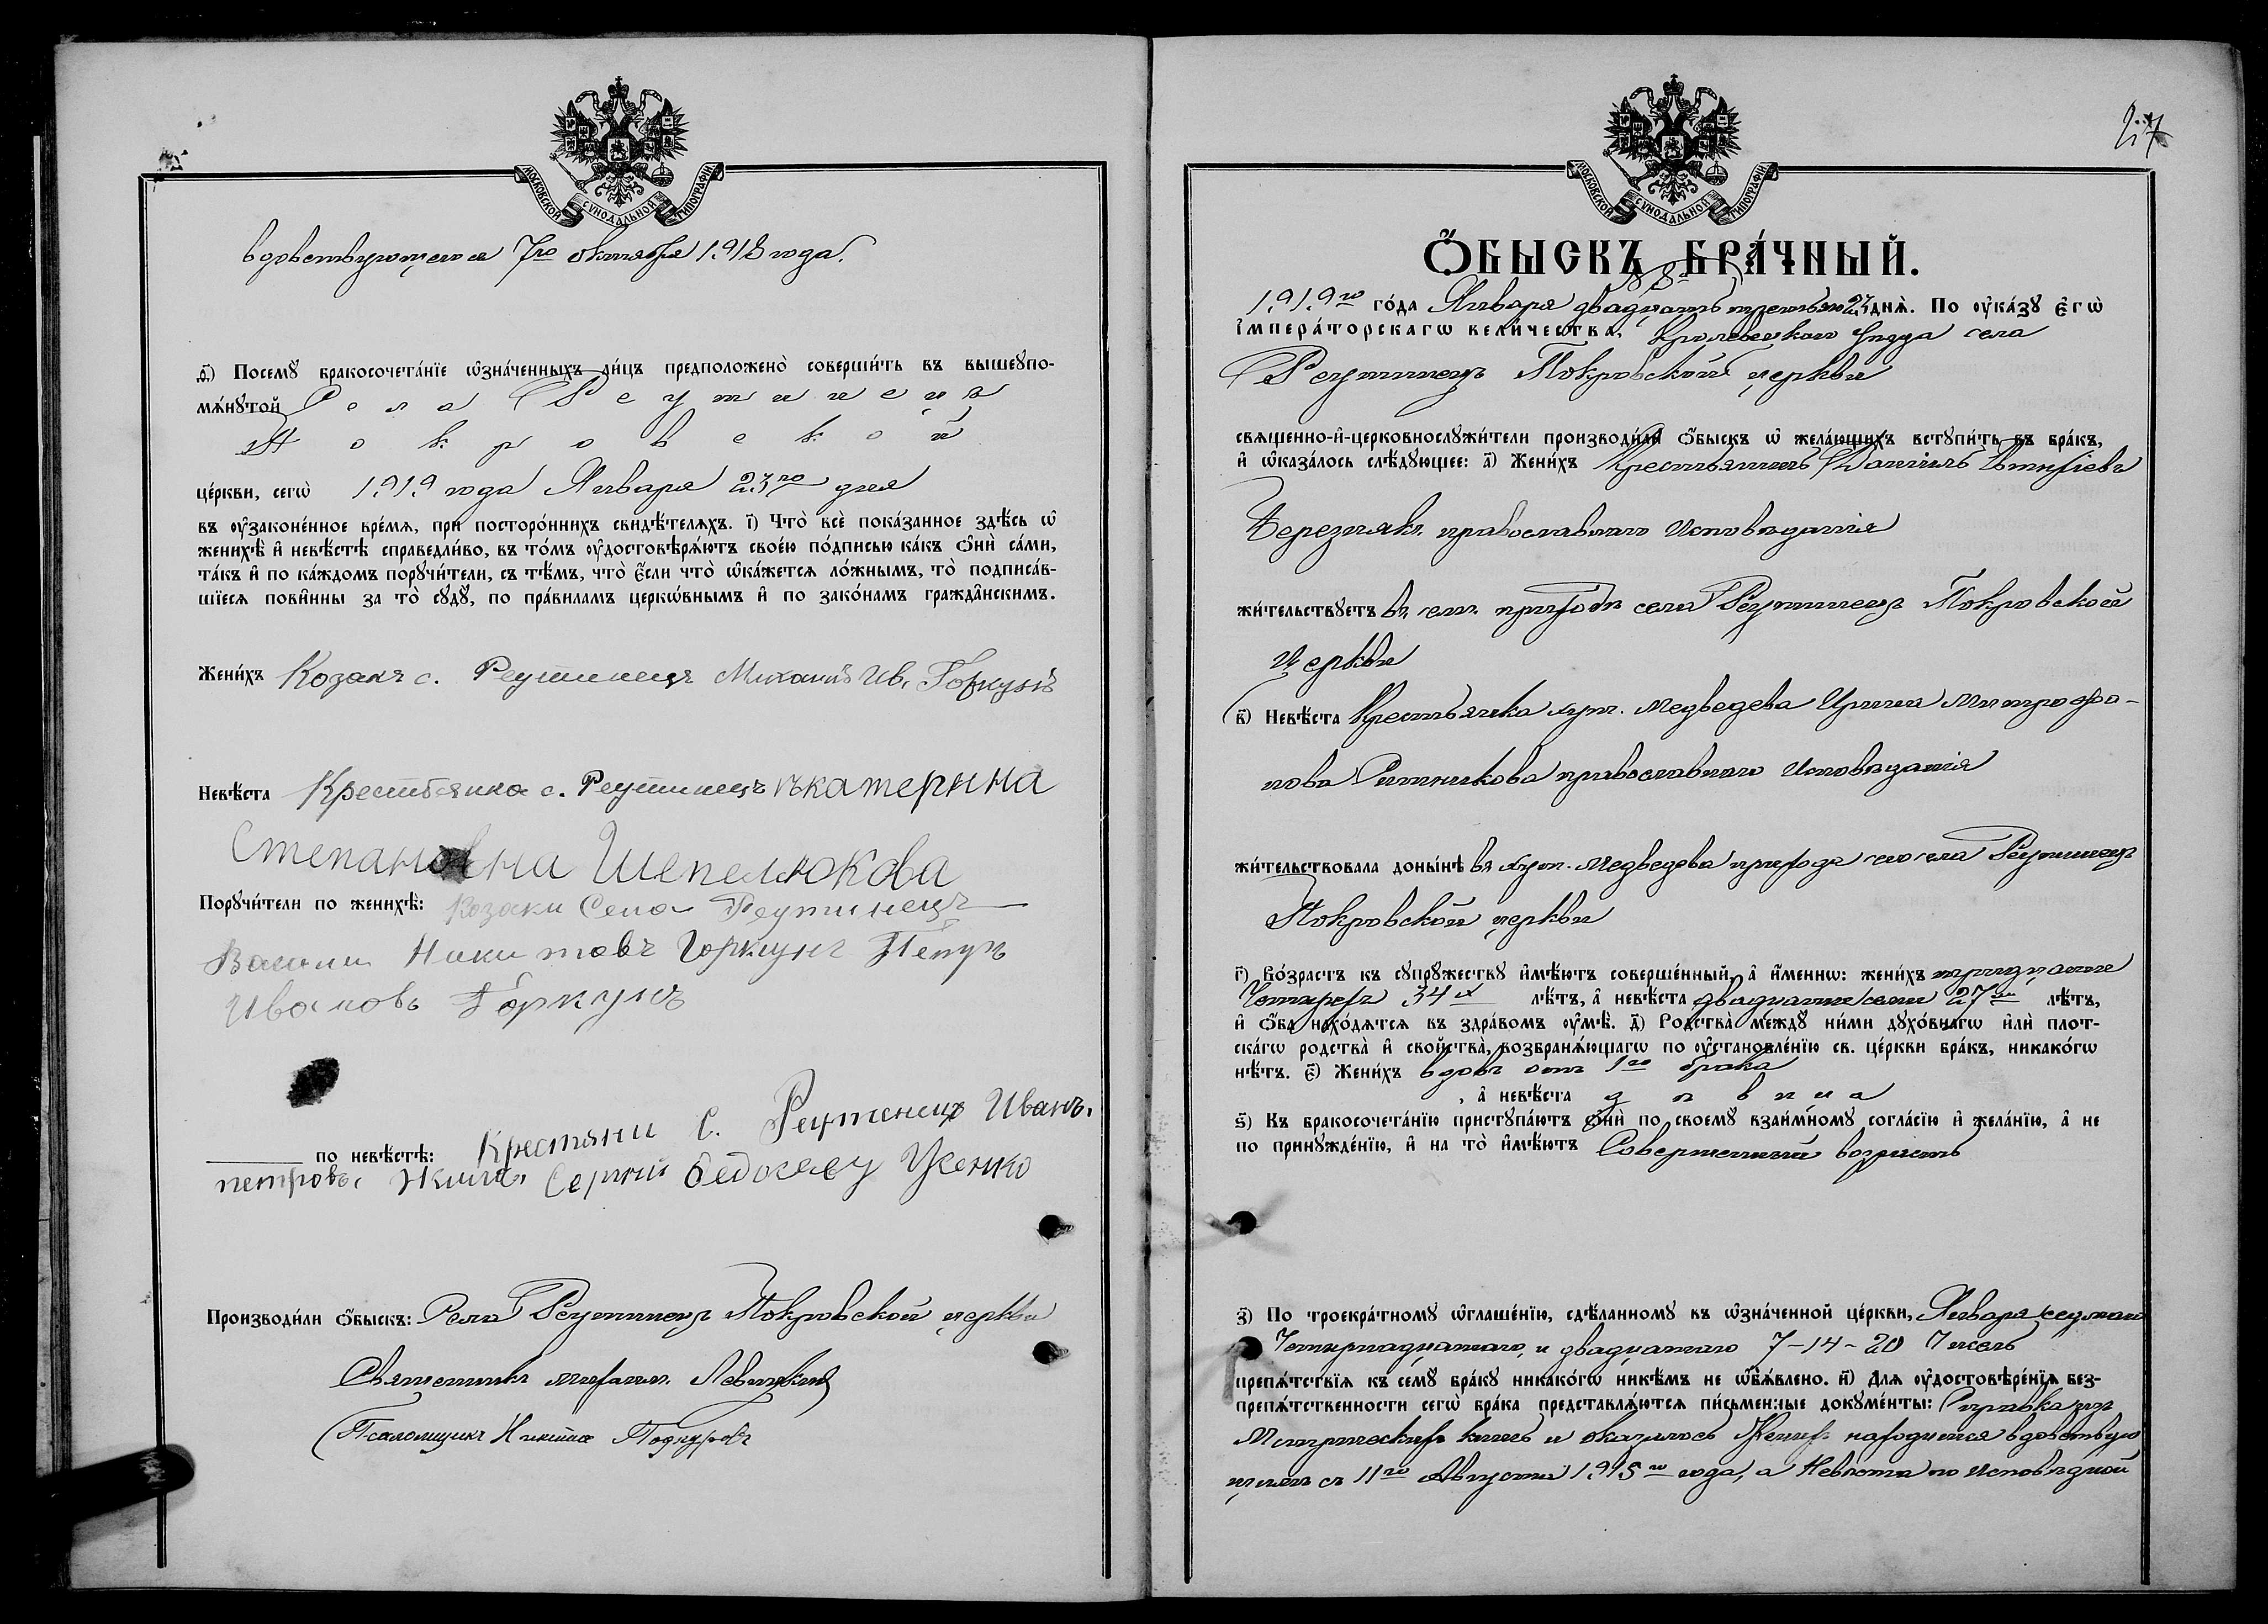 МОСКОВСКОЙ СУНОДАЛЬНОЙ ТИПОГРАФІИ
вдовствующегося 7го октября 1918 года.
ѳ҃) Посемꙋ̀ бракосочета́нїе ѡ҆зна́ченныхъ ли́цъ предположено̀ соверши́ть въ вышеꙋпо-
мѧ́нꙋтой Села Реутинецъ
Покровской
це́ркви, сегѡ̀ 1919 года Января 23го дня
въ ᲂу҆зако́ненное вре́мѧ, при посторо́ннихъ свидѣ́телѧхъ. і҃) Что̀ всѐ пока́занное здѣ́сь ѡ҆
женихѣ̀ и҆ невѣ́стѣ справедли́во, въ то́мъ ᲂу҆достовѣрѧ́ютъ свое́ю по́дписью ка́къ ѻ҆нѝ са́ми,
та́къ и҆ по ка́ждомъ порꙋчи́тели, съ тѣ́мъ, что̀ є҆́сли что̀ ѡ҆ка́жетсѧ ло́жнымъ, то̀ подписа́в-
шїесѧ пови́нны за то̀ сꙋдꙋ̀, по пра́виламъ церко́внымъ и҆ по зако́намъ гражда́нскимъ.
Жени́хъ Козакъ с. Реутинецъ Михаилъ Ив. Горкунъ
Невѣ́ста Крестьянка с. Реутинецъ Екатерина
Степановна Шепелюкова
Порꙋчи́тели по женихѣ̀: Козаки Села Реутинецъ
Васили Никитовъ Горкунъ Петръ
Ивановъ Горкунъ
по невѣ́стѣ: Крестяни С. Реутенецъ Иванъ.
петровъ. Сергий Усенко
Производи́ли ѻ҆́быскъ: Села Реутинецъ Покровской церкви
Священникъ Левицкий
Псаломщикъ Никита
27
МОСКОВСКОЙ СУНОДАЛЬНОЙ ТИПОГРАФІИ
Ѻ҆́БЫСКЪ БРА́ЧНЫЙ.
1919го го́да Января двадцать третьяго 23 днѧ̀. По ᲂу҆ка́зꙋ Є҆гѡ̀
І҆мпера́торскагѡ вели́чества, Кролевецкаго Уѣзда села
Реутинецъ Покровской церкви
свѧще́нно-и҆-церковнослꙋжи́тели производи́ли ѻ҆́быскъ ѡ҆ жела́ющихъ встꙋпи́ть въ бра́къ,
и҆ ѡ҆каза́лось слѣ́дꙋющее: а҃) Жени́хъ Крестьянинъ Евтихіевъ
Березнякъ православнаго Исповѣданія
жи́тельствꙋетъ въ сем. приходѣ села Реутинецъ Покровской
церкви
в҃) Невѣ́ста Крестьянка хут. Медведева Ирина Митрофа-
нова Ситникова православнаго Исповѣданія
жи́тельствовала доны́нѣ въ хут. Медведева прихода сего села Реутинецъ
Покровской церкви
г҃) Во́зрастъ къ сꙋпрꙋ́жествꙋ и҆мѣ́ютъ соверше́нный, а҆ и҆́меннѡ: жени́хъ тридцати
Четырехъ 34х лѣ́тъ, а҆ невѣ́ста двадцати семи 27ми лѣ́тъ,
и҆ ѻ҆́ба нахо́дѧтсѧ въ здра́вомъ ᲂу҆мѣ̀. д҃) Родства̀ междꙋ̀ ни́ми дꙋхо́внагѡ и҆лѝ плот-
ска́гѡ родства̀ и҆ свойства̀, возбранѧ́ющагѡ по ᲂу҆становле́нїю св. це́ркви бра́къ, никако́гѡ
нѣ́тъ. є҃) Жени́хъ вдовъ отъ 1го брака
, а҆ невѣ́ста дѣвица
ѕ҃) Къ бракосочета́нїю пристꙋпа́ютъ ѻ҆нѝ по своемꙋ̀ взаи́мномꙋ согла́сїю и҆ жела́нїю, а҆ не
по принꙋжде́нїю, и҆ на то̀ и҆мѣ́ютъ Совершенный возрастъ
з҃) По троекра́тномꙋ ѡ҆глаше́нїю, сдѣ́ланномꙋ въ ѡ҆зна́ченной це́ркви, Января седьмаго
Четырнадцатаго, и двадцатаго 7-14-20 Чиселъ
препѧ́тствїѧ къ семꙋ̀ бра́кꙋ никако́гѡ никѣ́мъ не ѡ҆б̾ѧ́влено. и҃) Длѧ ᲂу҆достовѣре́нїѧ без-
препѧ́тственности сегѡ̀ бра́ка представлѧ́ютсѧ пи́сьменные докꙋме́нты: Справка изъ
Метрическихъ книгъ и оказалось Женихъ находится вдовствую
щимъ съ 11го Августа 1915го года, а Невѣста по Исповѣдной